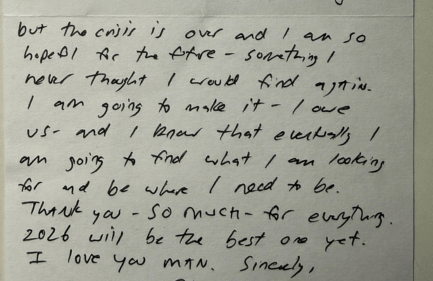 but the crisis is over and I am so
hopeful for the future - something I
never thought I would find again.
I am going to make it - I owe
us - and I know that eventually I
am going to find what I am looking
for and be where I need to be.
Thank you - so much - for everything.
2026 will be the best one yet.
I love you man. Sincerely,